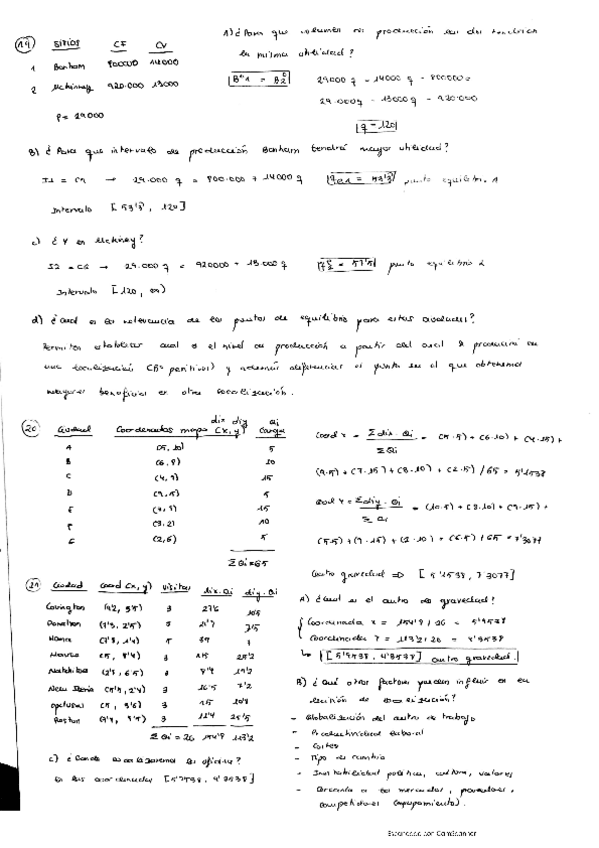 19 SITIOS CF CV
1 Bonham 800000 14000
2 McKinney 920.000 13000
P = 29000
A) ¿Para que volumen de producción las dos tendrían
la misma utilidad?
Bº1 = Bº2 29000 q - 14000 q - 800.000
29.000q - 13000 q - 920.000
q = 120
B) ¿Para que intervalo de producción Bonham tendrá mayor utilidad?
I1 = C1 → 29.000 q = 800.000 + 14000 q qe1 = 53'3 punto equilibrio 1
Intervalo [53'3, 120]
c) ¿Y en McKinney?
I2 = C2 → 29.000 q = 920000 + 13.000 q = 57'5 punto equilibrio 2
Intervalo [120, ∞)
d) ¿Cual es la relevancia de los puntos de equilibrio para estas ciudades?
Permiten establecer cual es el nivel de producción a partir del cual producirá en
una localización (Bº positivos) y además diferenciar el punto en el que obtenemos
mayores beneficios en otra localización.
20 Ciudad Coordenadas mapa (x, y) dix diy Qi carga
A (5, 10) 5
B (6, 8) 10
C (4, 9) 15
D (9, 5) 5
E 15
F (3, 2) 10
G (2, 6) 5
ΣQi = 65
Coord x = Σdix · Qi / ΣQi = (5·5) + (6·10) + (4·15) +
(9·5) + (7·15) + (3·10) + (2·5) / 65 = 5'1538
Coord Y = Σdiy · Qi / ΣQi = (10·5) + (8·10) + (9·15) +
(5·5) + (9·15) + (2·10) + (6·5) / 65 = 7'3077
Centro gravedad ⇒ [5'1538, 7'3077]
21 Ciudad Coord (x, y) visitas dix·Qi diy·Qi
Covington (9'2, 3'5) 3 27'6 10'5
Donaldson (7'3, 2'5) 3 21'9 7'5
Houma (7'8, 1'4) 5 39 7
Monroe (5, 8'4) 3 15 25'2
Natchitoches
New Iberia (5'5, 2'4) 3 16'5 7'2
Opelousas (5, 3'6) 3 15 10'8
Ruston (3'8, 8'5) 3 11'4 25'5
ΣQi = 26 154'8 113'2
c) ¿Donde localizaremos la oficina?
En las coordenadas
A) ¿Cual es el centro de gravedad?
Coordenada x = 154'8 / 26 = 5'9538
Coordenada Y = 113'2 / 26 = 4'3538
↳ [5'9538, 4'3538] centro gravedad.
B) ¿Qué otros factores pueden influir en la
decisión de localización?
- Globalización del centro de trabajo
- Productividad laboral
- Costes
- Tipo de cambio
- Inestabilidad política, cultura, valores
- Cercanía a los mercados, proveedores,
competidores (agrupamiento).
Escaneado con CamScanner